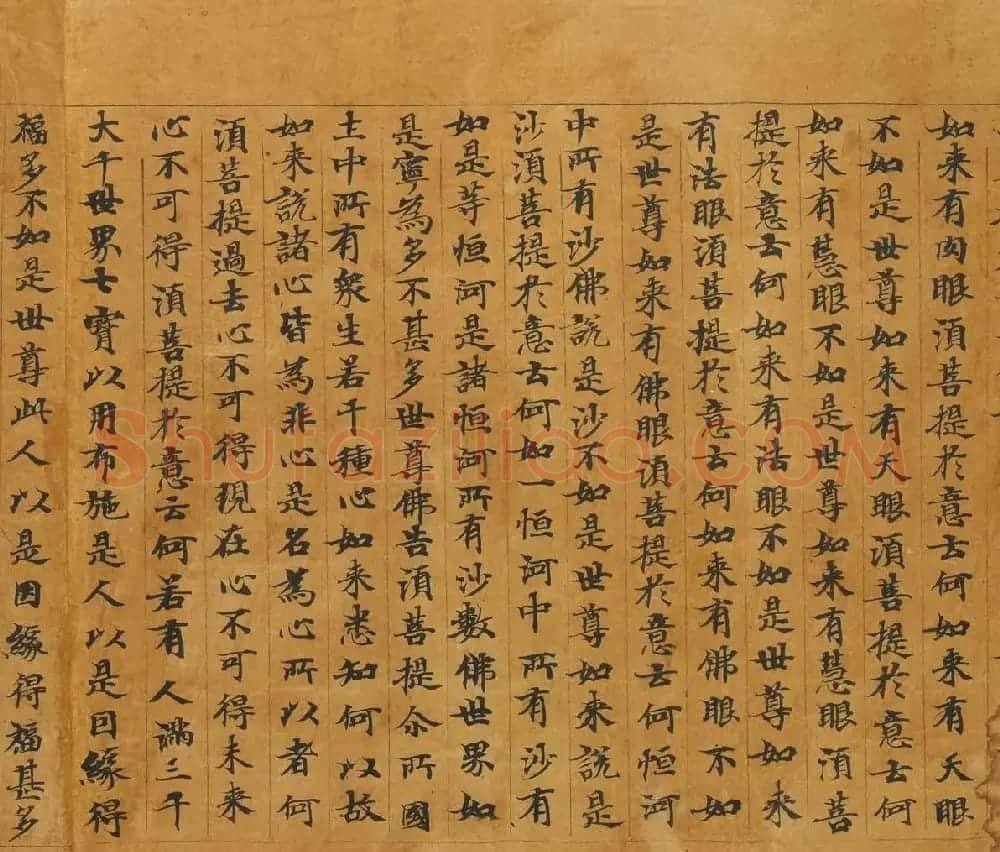 如来有肉眼湏菩提扵意云何如来有天眼
不如是世尊如来有天眼湏菩提扵意云何
如来有慧眼不如是世尊如来有慧眼湏菩
提扵意云何如来有法眼不如是世尊如来
有法眼湏菩提扵意云何如来有佛眼不如
是世尊如来有佛眼湏菩提扵意云何恒河
中所有沙佛說是沙不如是世尊如来說是
沙湏菩提扵意云何如一恒河中所有沙有
如是等恒河是諸恒河所有沙數佛世界如
是寧為多不甚多世尊佛告湏菩提尒所國
土中所有衆生若干種心如来悉知何以故
如来說諸心皆為非心是名為心所以者何
湏菩提過去心不可得現在心不可得未来
心不可得湏菩提扵意云何若有人滿三千
大千世界七寶以用布施是人以是因緣得
福多不如是世尊此人以是因緣得福甚多
Shufaziliao.COM